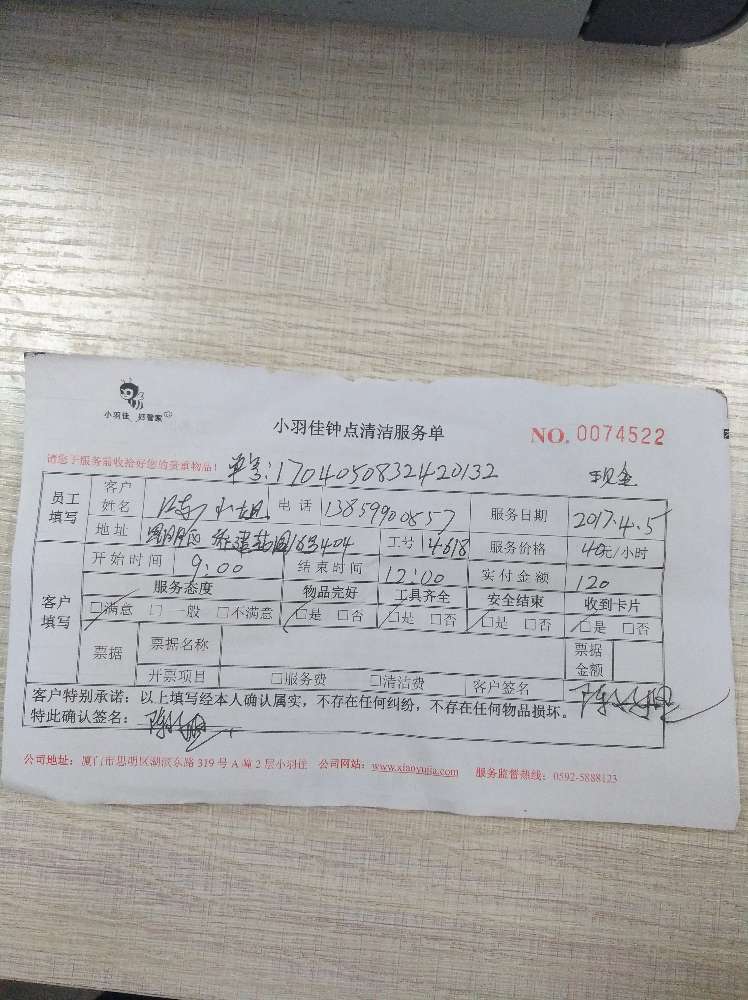 小羽佳 好管家
小羽佳钟点清洁服务单
NO. 0074522
请您于服务前收拾好您的贵重物品!
单号:1704050832420132
现金
员工填写 客户姓名 陈 小姐 电话 13859900857 服务日期 2017.4.5
地址 思明区 163404 工号 4618 服务价格 40元/小时
客户填写 开始时间 9:00 结束时间 12:00 实付金额 120
服务态度 物品完好 工具齐全 安全结束 收到卡片
□满意 □一般 □不满意 □是 □否 □是 □否 □是 □否 □是 □否
票据 票据名称 票据金额
开票项目 □服务费 □清洁费 客户签名
客户特别承诺:以上填写经本人确认属实,不存在任何纠纷,不存在任何物品损坏。
特此确认签名:
公司地址:厦门市思明区湖滨东路 319 号 A 幢 2 层小羽佳 公司网站:www.xiaoyujia.com 服务监督热线:0592-5888123